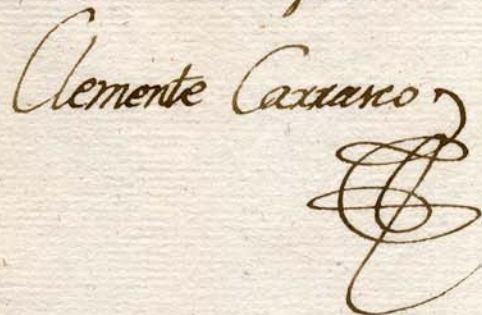 Clemente Carrasco